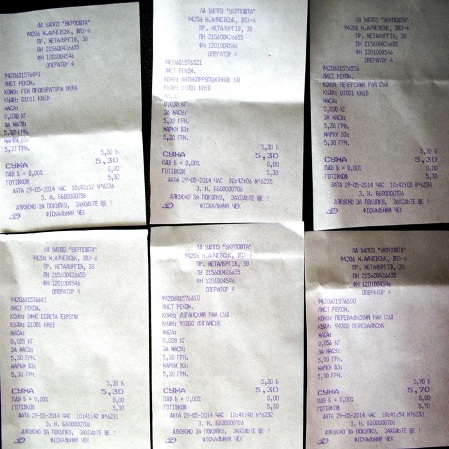 ЛД УДППЗ "УКРПОШТА"
94206 М.АЛЧЕВСЬК, ВПЗ-6
ПР. МЕТАЛУРГІВ, 38
ПН 215600426655
ФН 1201004546
ОПЕРАТОР 4
ЛИСТ РЕКОМ.
КОМУ: ГЕН ПРОКУРАТУРА
КУДИ: 01011 КИЕВ
МАСА:
0,030 КГ
ЗА МАСУ:
5,30 ГРН.
МАРКИ ВЗ:
5,30 ГРН.
5,30 Б
СУМА 5,30
ПДВ Б = 0,00% 0,00
ГОТІВКОЮ 5,30
ДАТА 29-05-2014 ЧАС 10:42:12 №6236
З. Н. ББ00000706
ДЯКУЄМО ЗА ПОКУПКУ, ЗАХОДЬТЕ ЩЕ !
ФІСКАЛЬНИЙ ЧЕК
ЛД УДППЗ "УКРПОШТА"
94206 М.АЛЧЕВСЬК, ВПЗ-6
ПР. МЕТАЛУРГІВ, 38
ПН 215600426655
ФН 1201004546
ОПЕРАТОР 4
ЛИСТ РЕКОМ.
КОМУ:
КУДИ: 01001 КИЕВ
МАСА:
0,030 КГ
ЗА МАСУ:
5,30 ГРН.
МАРКИ ВЗ:
5,30 ГРН.
5,30 Б
СУМА 5,30
ПДВ Б = 0,00% 0,00
ГОТІВКОЮ 5,30
ДАТА 29-05-2014 ЧАС 10:42:06 №6235
З. Н. ББ00000706
ДЯКУЄМО ЗА ПОКУПКУ, ЗАХОДЬТЕ ЩЕ !
ФІСКАЛЬНИЙ ЧЕК
ЛД УДППЗ "УКРПОШТА"
94206 М.АЛЧЕВСЬК, ВПЗ-6
ПР. МЕТАЛУРГІВ, 38
ПН 215600426655
ФН 1201004546
ОПЕРАТОР 4
ЛИСТ РЕКОМ.
КОМУ: ПЕЧЕРСКИ РАЙ СУД
КУДИ: 01001 КИЕВ
МАСА:
0,030 КГ
ЗА МАСУ:
5,30 ГРН.
МАРКИ ВЗ:
5,30 ГРН.
5,30 Б
СУМА 5,30
ПДВ Б = 0,00% 0,00
ГОТІВКОЮ 5,30
ДАТА 29-05-2014 ЧАС №6234
З. Н. ББ00000706
ДЯКУЄМО ЗА ПОКУПКУ, ЗАХОДЬТЕ ЩЕ !
ФІСКАЛЬНИЙ ЧЕК
ЛД УДППЗ "УКРПОШТА"
94206 М.АЛЧЕВСЬК, ВПЗ-6
ПР. МЕТАЛУРГІВ, 38
ПН 215600426655
ФН 1201004546
ОПЕРАТОР 4
ЛИСТ РЕКОМ.
КОМУ: ОФИС СОВЕТА ЕВРОПЫ
КУДИ: КИЕВ
МАСА:
0,028 КГ
ЗА МАСУ:
5,30 ГРН.
МАРКИ ВЗ:
5,30 ГРН.
5,30 Б
СУМА 5,30
ПДВ Б = 0,00% 0,00
ГОТІВКОЮ 5,30
ДАТА 29-05-2014 ЧАС
З. Н. ББ00000706
ДЯКУЄМО ЗА ПОКУПКУ, ЗАХОДЬТЕ ЩЕ !
ФІСКАЛЬНИЙ ЧЕК
ЛД УДППЗ "УКРПОШТА"
94206 М.АЛЧЕВСЬК, ВПЗ-6
ПР. МЕТАЛУРГІВ, 38
ПН 215600426655
ФН 1201004546
ОПЕРАТОР 4
ЛИСТ РЕКОМ.
КОМУ: ЛУГАНСКИЙ РАЙ СУД
КУДИ: ЛУГАНСК
МАСА:
0,028 КГ
ЗА МАСУ:
5,30 ГРН.
МАРКИ ВЗ:
5,30 ГРН.
5,30 Б
СУМА 5,30
ПДВ Б = 0,00% 0,00
ГОТІВКОЮ 5,30
ДАТА 29-05-2014 ЧАС 10:41:48 №6233
З. Н. ББ00000706
ДЯКУЄМО ЗА ПОКУПКУ, ЗАХОДЬТЕ ЩЕ !
ФІСКАЛЬНИЙ ЧЕК
ЛД УДППЗ "УКРПОШТА"
94206 М.АЛЧЕВСЬК, ВПЗ-6
ПР. МЕТАЛУРГІВ, 38
ПН 215600426655
ФН 1201004546
ОПЕРАТОР 4
ЛИСТ РЕКОМ.
КОМУ: ПЕРЕВАЛЬСКИЙ РАЙ СУД
КУДИ: 94300 ПЕРЕВАЛЬСК
МАСА:
ЗА МАСУ:
5,70 ГРН.
МАРКИ ВЗ:
5,70 ГРН.
5,70 Б
СУМА 5,70
ПДВ Б = 0,00% 0,00
ГОТІВКОЮ 5,70
ДАТА 29-05-2014 ЧАС 10:41:54
З. Н. ББ00000706
ДЯКУЄМО ЗА ПОКУПКУ, ЗАХОДЬТЕ ЩЕ !
ФІСКАЛЬНИЙ ЧЕК